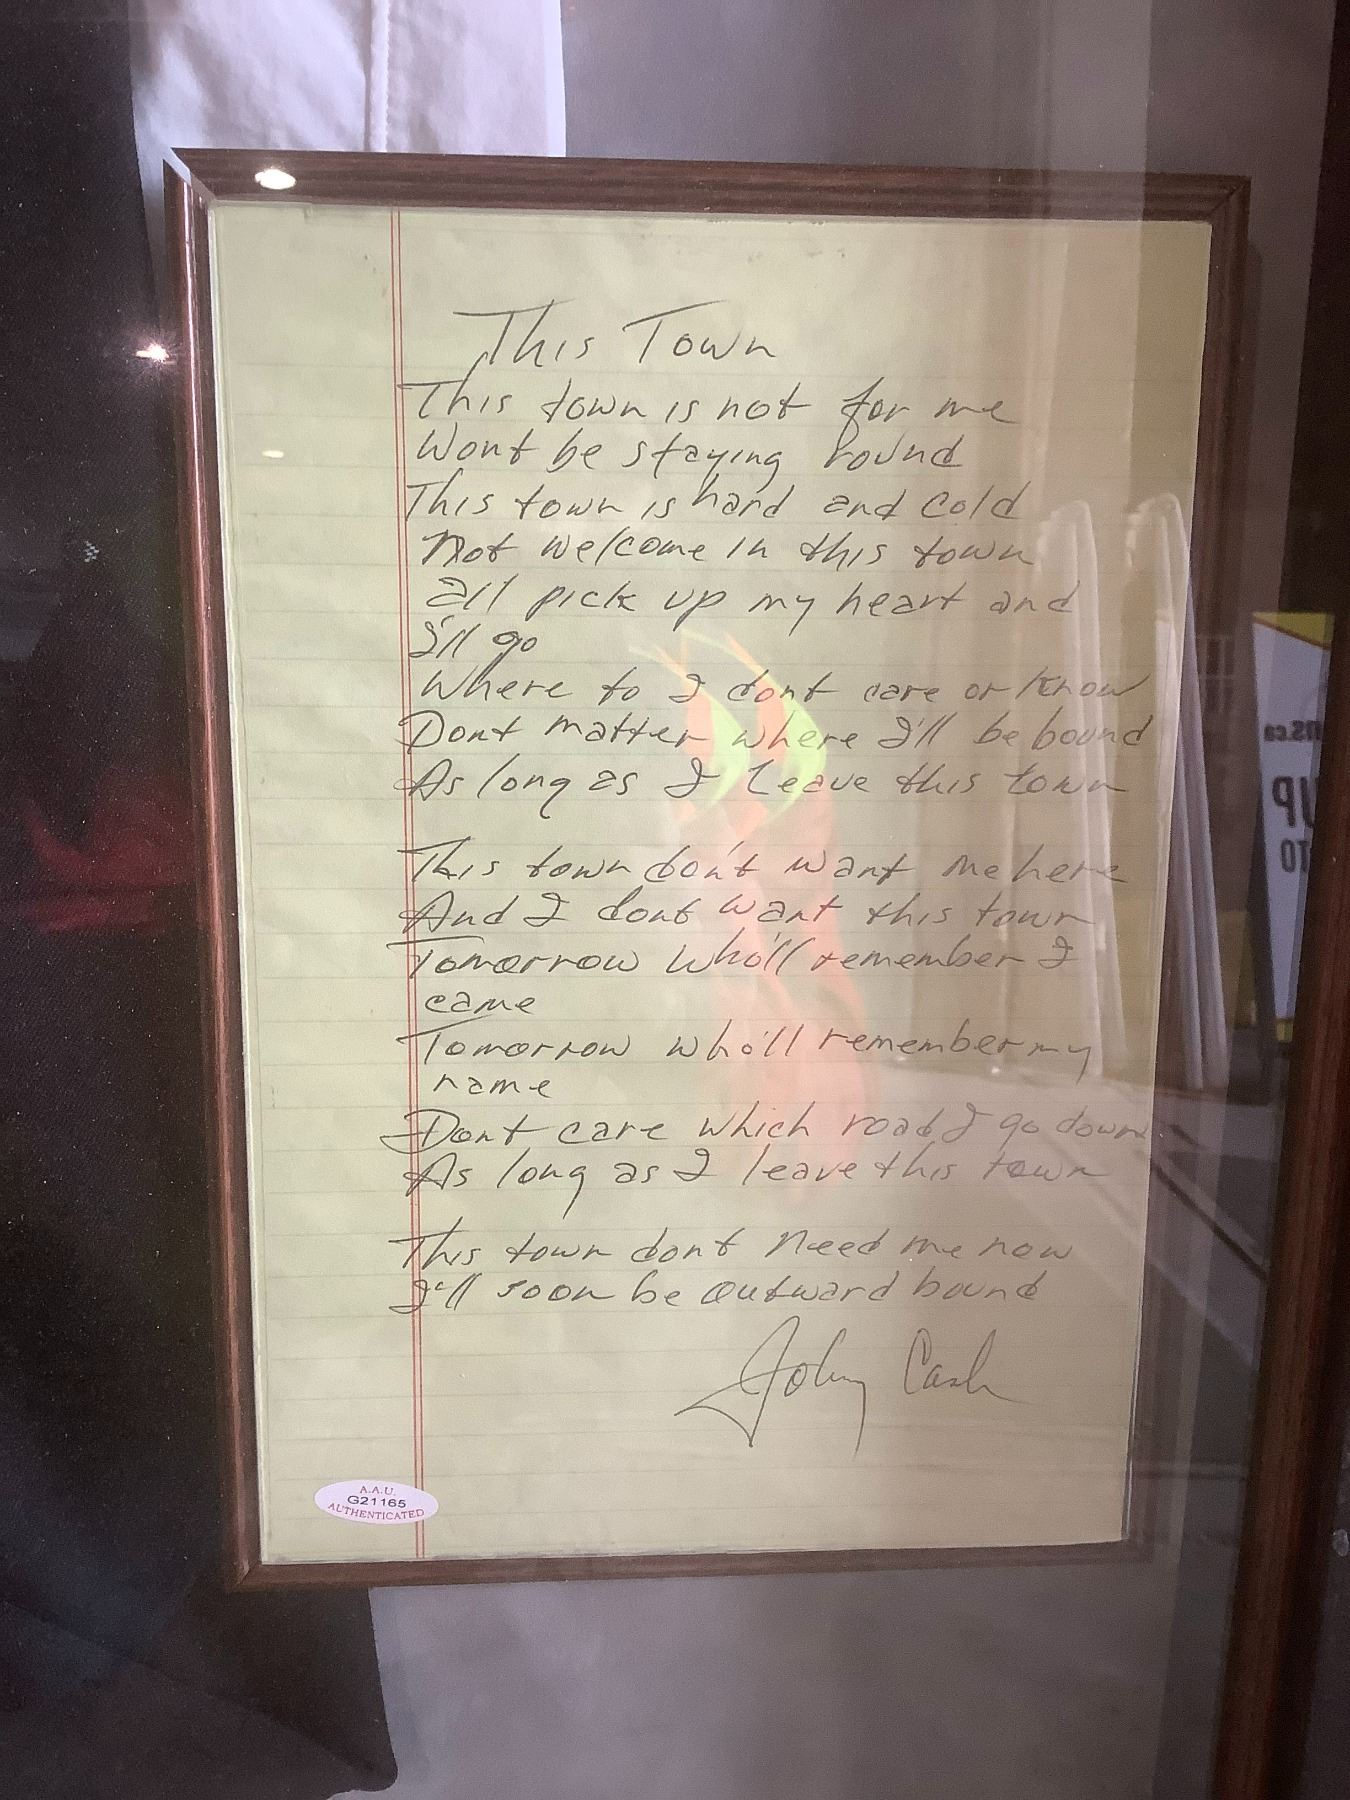 This Town
This town is not for me
Wont be staying round
This town is hard and cold
Not welcome in this town
all pick up my heart and
I'll go
Where to I dont care or know
Dont matter where I'll be bound
As long as I leave this town
This town don't want me here
And I dont want this town
Tomorrow who'll remember I
came
Tomorrow who'll remember my
name
Dont care which road I go down
As long as I leave this town
This town dont need me now
I'll soon be outward bound
Johny Cash
A.A.U.
G21165
AUTHENTICATED
UP
TO